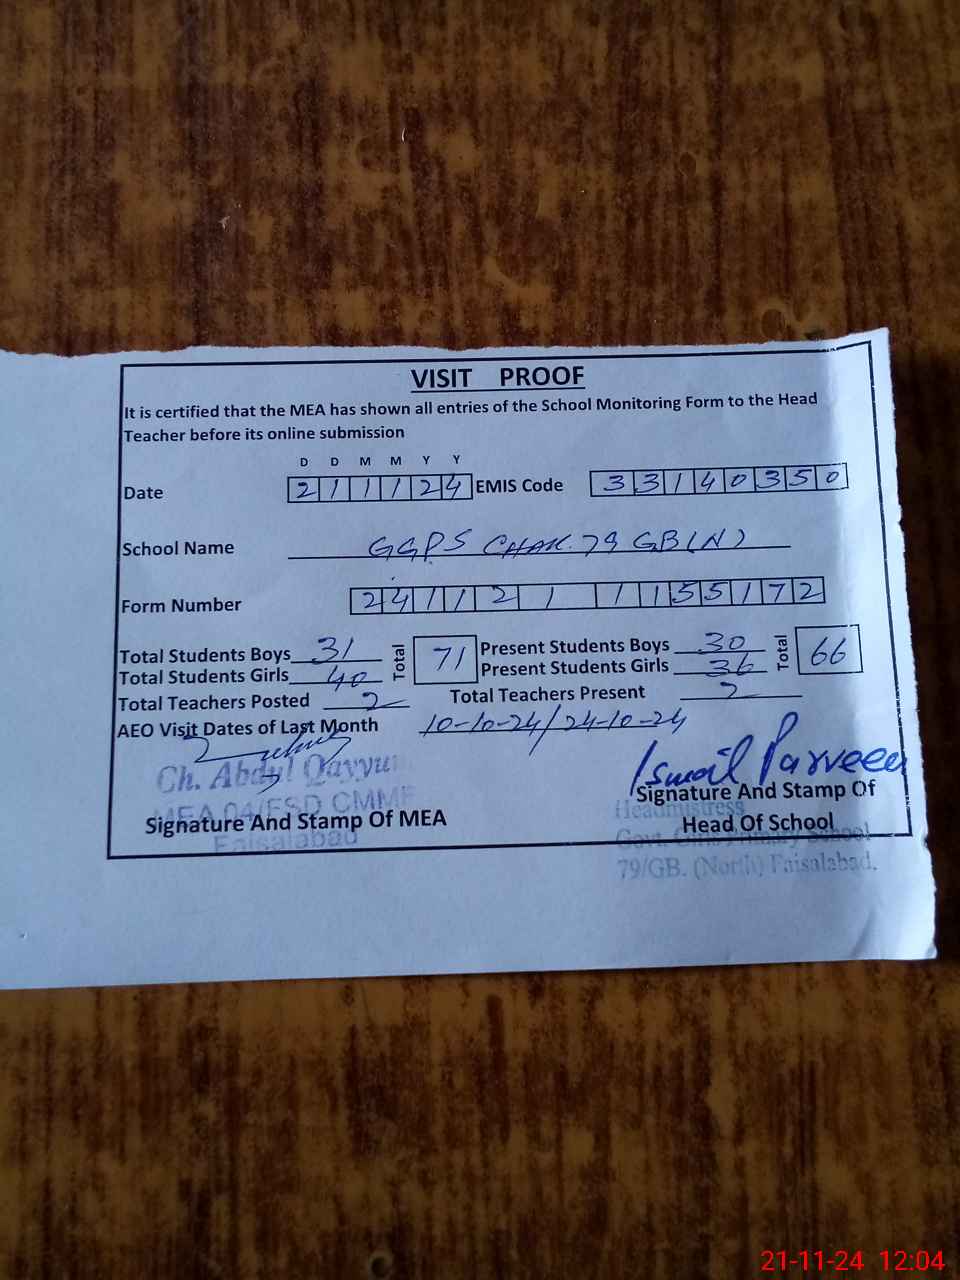 VISIT PROOF
It is certified that the MEA has shown all entries of the School Monitoring Form to the Head
Teacher before its online submission
D D M M Y Y
Date 2 1 1 1 2 4 EMIS Code 3 3 1 4 0 3 5 0
School Name GGPS CHAK. 79 GB (N)
Form Number 2 4 1 1 2 1 1 1 5 5 1 7 2
Total Students Boys 31 Total 71 Present Students Boys 30 Total 66
Total Students Girls 40 Present Students Girls 36
Total Teachers Posted 2 Total Teachers Present 2
AEO Visit Dates of Last Month 10-10-24/24-10-24
Ch. Abdul Qayyum
MEA 04/FSD CMMF
Faisalabad
Signature And Stamp Of MEA
Ismail Parveen
Signature And Stamp Of
Head Of School
Headmistress
Govt. Girls Primary School
79/GB. (North) Faisalabad.
21-11-24 12:04